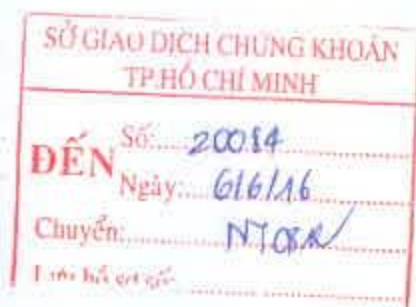 SỞ GIAO DỊCH CHỨNG KHOÁN
TP.HỒ CHÍ MINH
ĐẾN
Số: 20084
Ngày: 6/6/16
Chuyển: